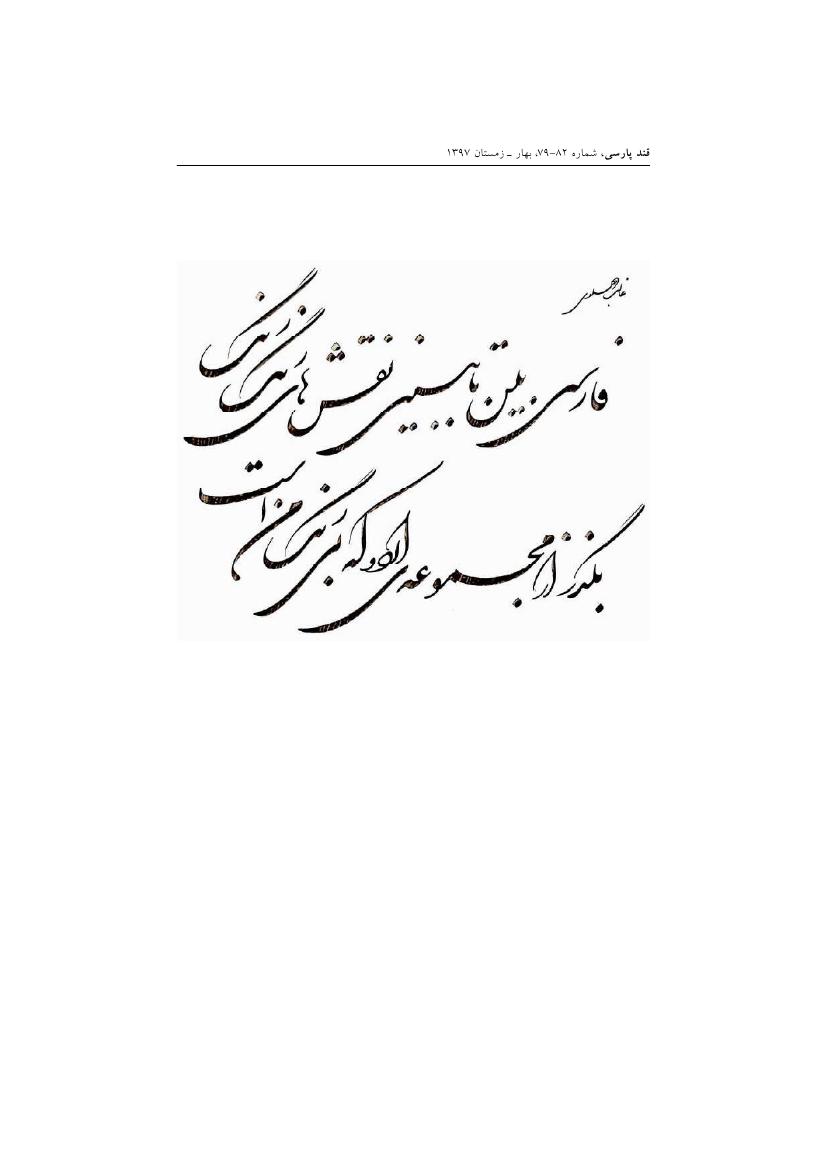 قند پارسی، شماره ۸۲-۷۹، بهار ـ زمستان ۱۳۹۷
غالب دهلوی
فارسی بین تا ببینی نقش های رنگ رنگ
بگذر از مجموعه ی اردو که بی رنگ من است